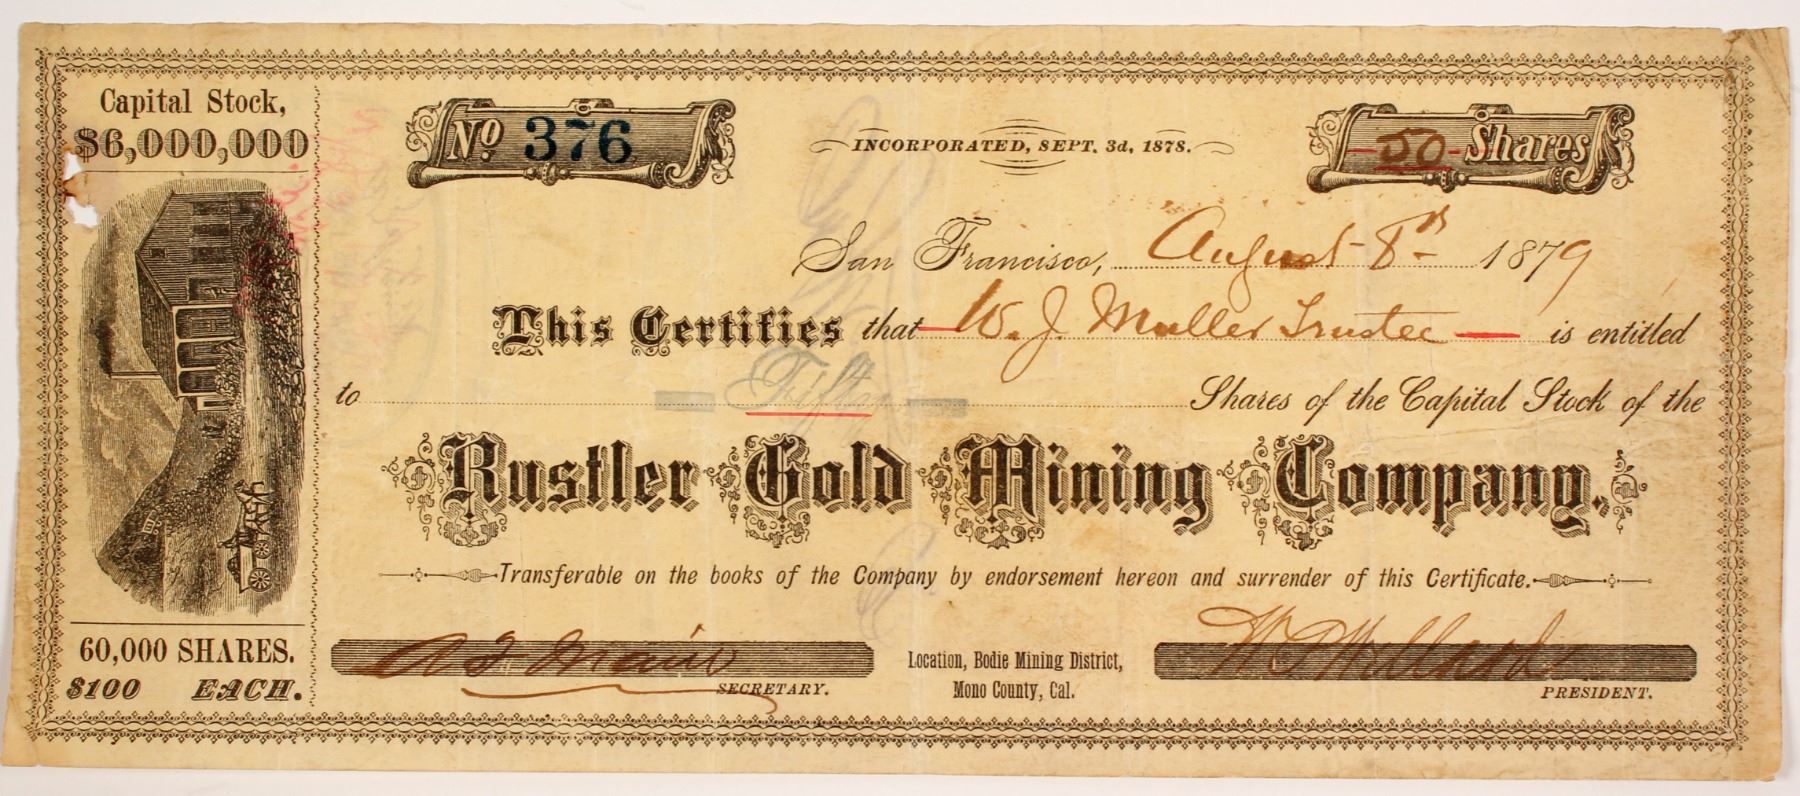 Capital Stock,
$6,000,000
No 376
INCORPORATED, SEPT. 3d, 1878.
50 Shares
San Francisco, August 8th 1879
This Certifies that W. J. Muller Trustee is entitled
to Fifty Shares of the Capital Stock of the
Rustler Gold Mining Company.
Transferable on the books of the Company by endorsement hereon and surrender of this Certificate.
60,000 SHARES.
$100 EACH.
SECRETARY.
Location, Bodie Mining District,
Mono County, Cal.
PRESIDENT.